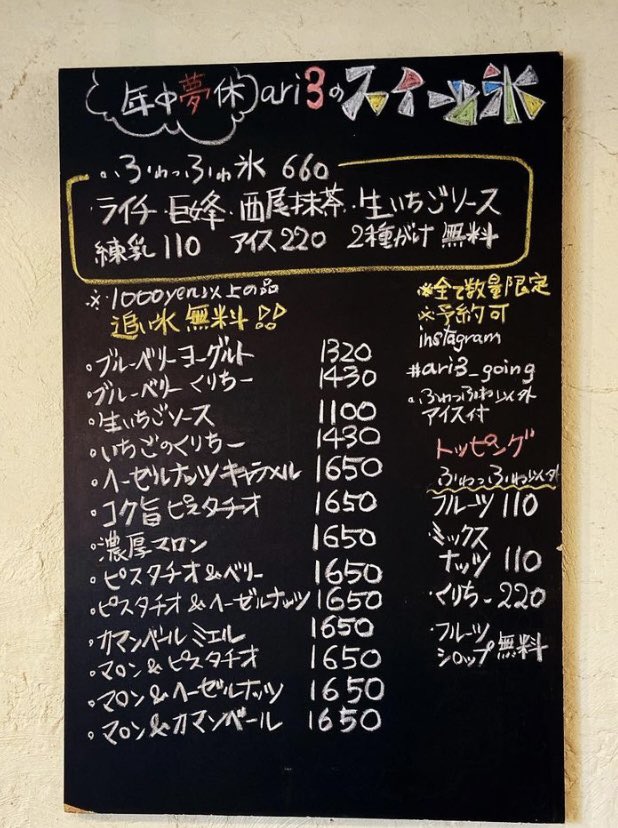 年中夢休 ari3のスイーツ氷
ふわっふわ氷 660
ライチ・巨峰・西尾抹茶・生いちごソース
練乳110 アイス220 2種がけ 無料
※1000yen以上の品
追い氷 無料!!
・ブルーベリーヨーグルト 1320
・ブルーベリーくりちー 1430
・生いちごソース 1100
・いちごのくりちー 1430
・ヘーゼルナッツキャラメル 1650
・コク旨ピスタチオ 1650
・濃厚マロン 1650
・ピスタチオ&ベリー 1650
・ピスタチオ&ヘーゼルナッツ 1650
・カマンベールミエル 1650
・マロン&ピスタチオ 1650
・マロン&ヘーゼルナッツ 1650
・マロン&カマンベール 1650
※全て数量限定
※予約可
instagram
#ari3_going
・ふわっふわ以外
アイス付
トッピング
ふわっふわ以外
フルーツ 110
・ミックス
ナッツ 110
・くりちー 220
・フルーツ
シロップ 無料